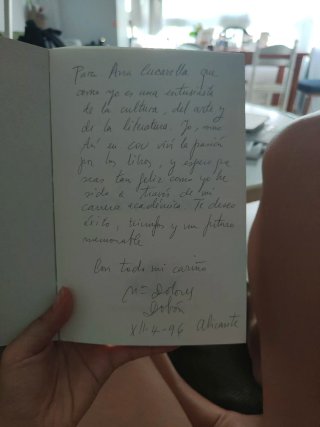 Para Ana Lucarella que
como yo es una entusiasta
de la cultura, del arte y
de la literatura. Yo,
así en COU viví la pasión
por los libros, y espero que
seas tan feliz como yo he
sido a través de mi
carrera académica. Te deseo
éxito, triunfos y un futuro
memorable
Con todo mi cariño
Mª Dolores
XII-4-96 Alicante